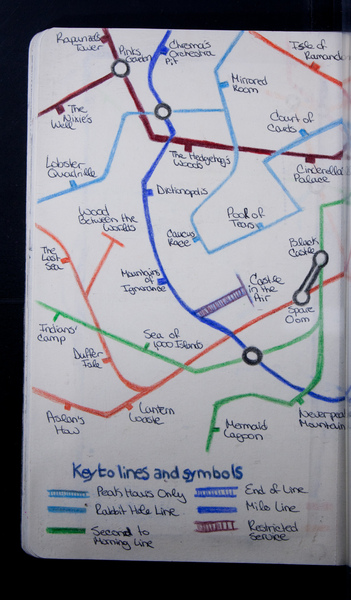 Rapunzel's
Tower
Pinks
Garden
Chroma's
Orchestra
Pit
Isle of
Ramando
Mirrored
Room
The
Nixie's
Well
Court of
Cards
The Hedgehog's
Woods
Cinderella
Palace
Lobster
Quadrille
Dictionopolis
Wood
Between the
Worlds
Pool of
Tears
Caucus
Race
The
Last
Sea
Black
Castle
Mountains
of
Ignorance
Castle
in the
Air
Spare
Oom
Indians'
Camp
Sea of
1000 Islands
Duffer
Isle
Aslan's
How
Lantern
Waste
Mermaid
Lagoon
Neverpeak
Mountain
Key to lines and symbols
Peak Hours Only
End of Line
Rabbit Hole Line
Milo Line
Second to
Morning Line
Restricted
Service